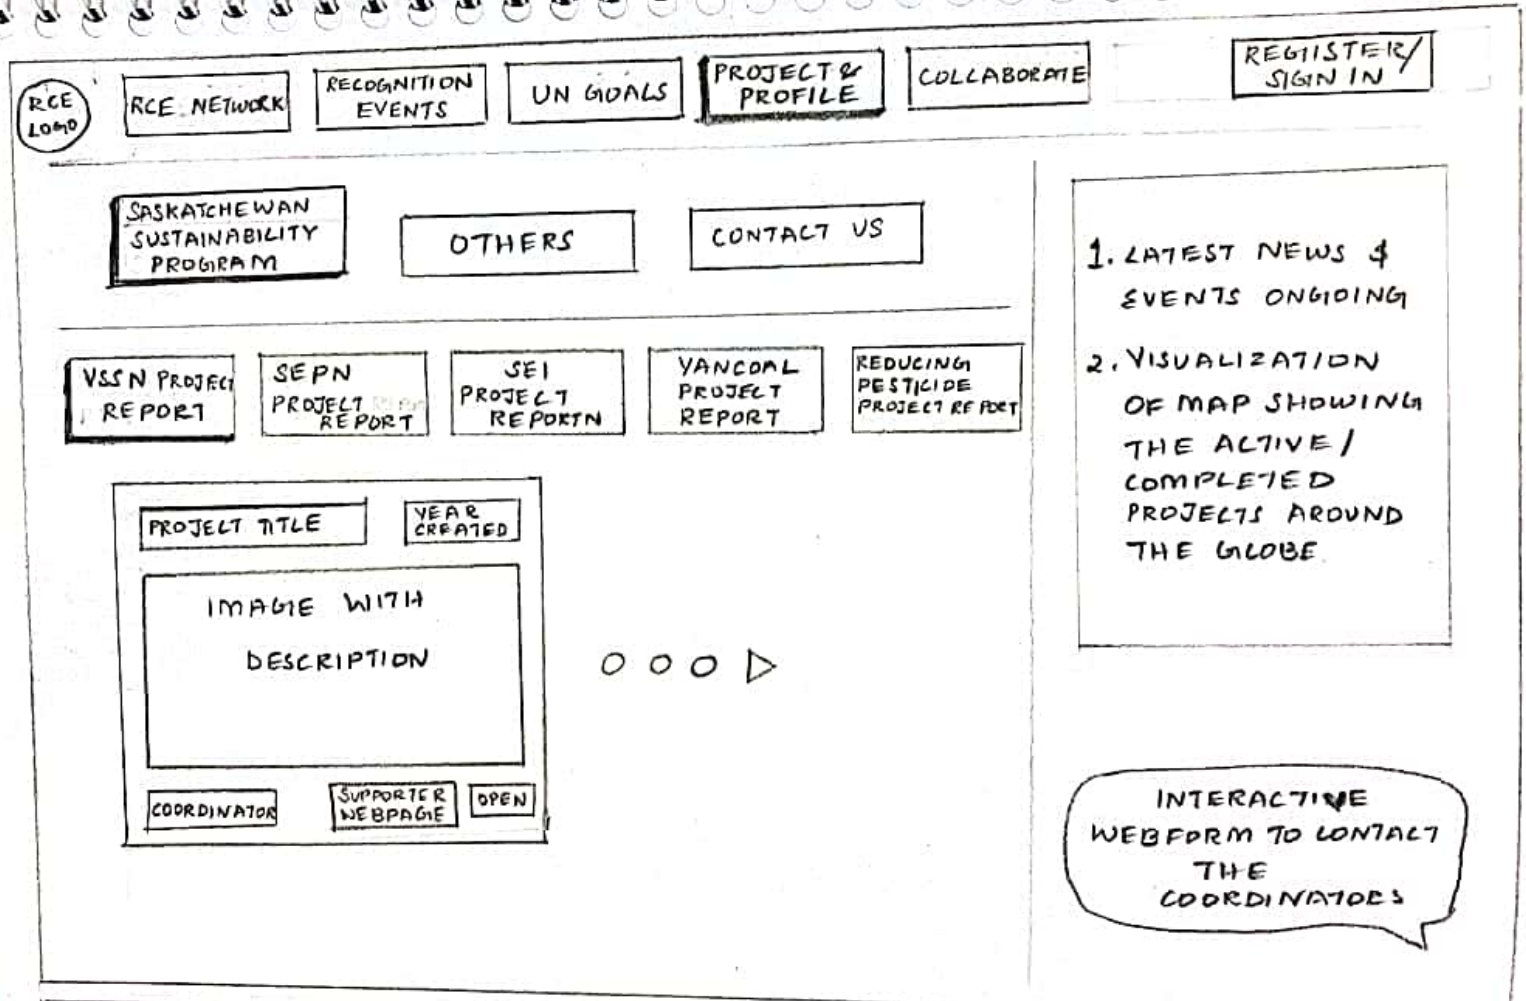 RCE
LOGO
RCE NETWORK
RECOGNITION
EVENTS
UN GOALS
PROJECT &
PROFILE
COLLABORATE
REGIISTER/
SIGN IN
SASKATCHEWAN
SUSTAINABILITY
PROGRAM
OTHERS
CONTACT US
VSSN PROJECT
REPORT
SEPN
PROJECT
REPORT
SEI
PROJECT
REPORTN
YANCOAL
PROJECT
REPORT
REDUCING
PESTICIDE
PROJECT REPORT
PROJECT TITLE
YEAR
CREATED
IMAGE WITH
DESCRIPTION
COORDINATOR
SUPPORTER
WEBPAGE
OPEN
1. LATEST NEWS &
EVENTS ONGOING
2. VISUALIZATION
OF MAP SHOWING
THE ACTIVE/
COMPLETED
PROJECTS AROUND
THE GLOBE
INTERACTIVE
WEBFORM TO CONTACT
THE
COORDINATORS